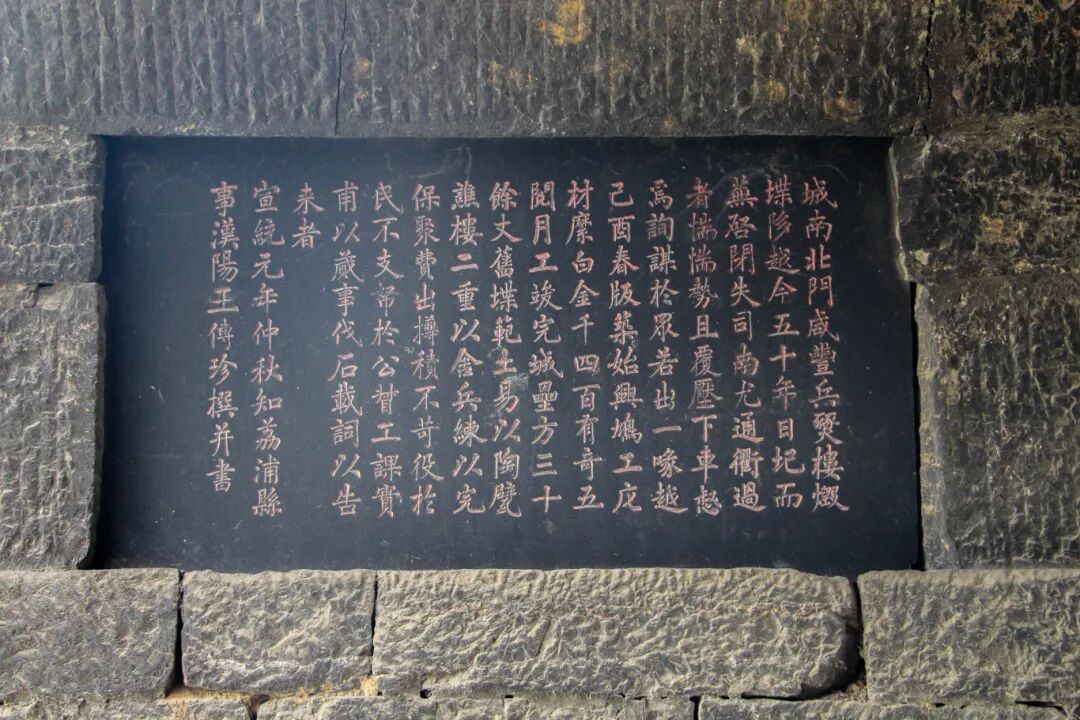 城南北門咸豐兵燹樓燬
堞陊越今五十年日圮而
蕪啓閉失司南尤通衢過
者惴惴勢且覆壓下車惄
焉詢謀於眾若出一喙越
己酉春版築始興鳩工庀
材縻白金千四百有奇五
閱月工竣完城壘方三十
餘丈舊堞範土易以陶甓
譙樓二重以舍兵練以完
保聚費出撙積不苛役於
民不支帑於公督工課實
甫以蕆事伐石載詞以告
来者
宣統元年仲秋知荔浦縣
事漢陽王傳珍撰并書